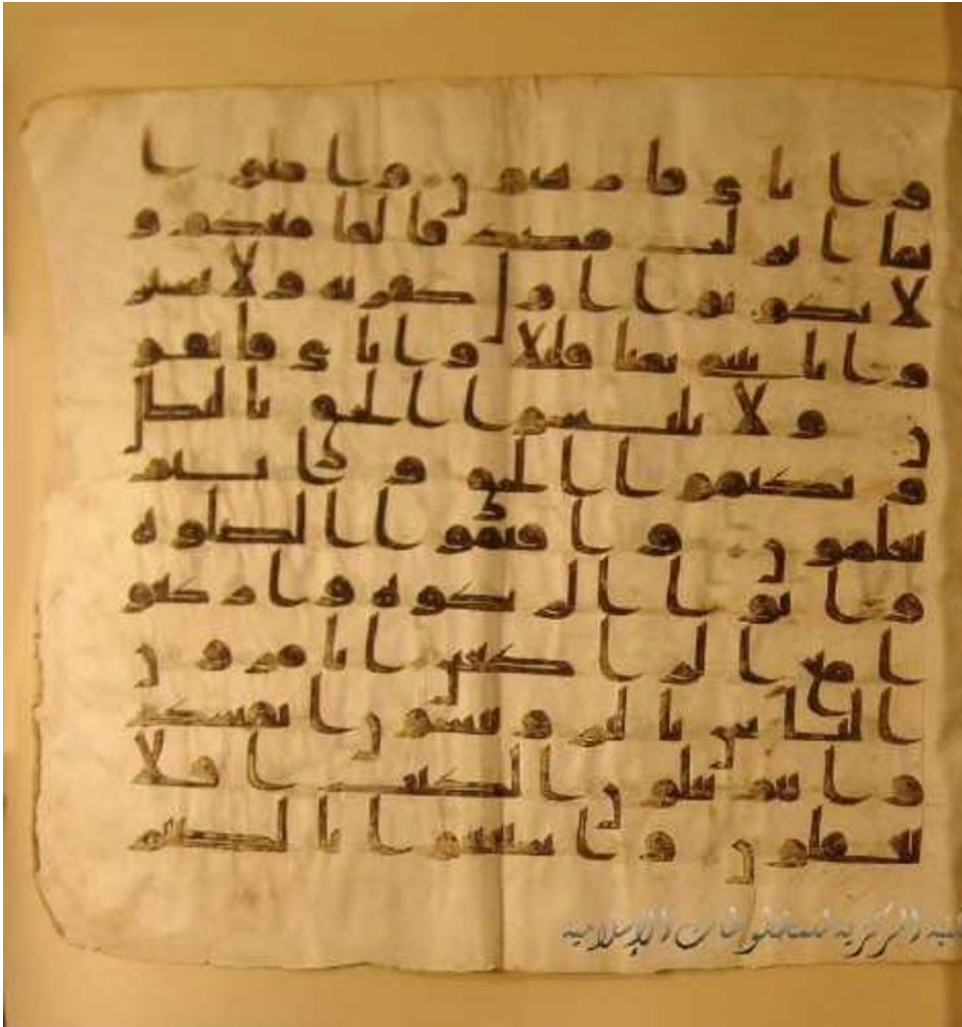 واياى فارهبون وامنوا
بما انزلت مصدقا لما معكم و
لا تكونوا اول كفر به ولا تشتر
وا بايتى ثمنا قليلا واياى فاتقو
ن ولا تلبسوا الحق بالبطل
وتكتموا الحق وانتم
تعلمون واقيموا الصلوه
واتوا الزكوه واركعو
ا مع الركعين اتامرون
الناس بالبر وتنسون انفسكم
وانتم تتلون الكتب افلا
تعقلون واستعينوا بالصبر
المركزية للمخطوطات الإسلامية